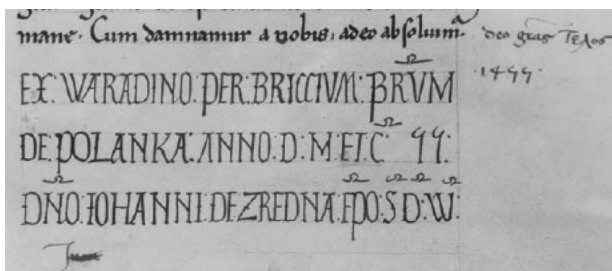 mane. Cum damnamur a vobis, adeo absoluim̃.
deo gras ΤΕΛΟΣ
1455
EX: WARADINO: PER: BRICCIVM:
DE: POLANKA: ANNO: D: M: ET: C̄: 55:
DNO: IOHANNI: DE ZREDNA: EPO: S: D: W: